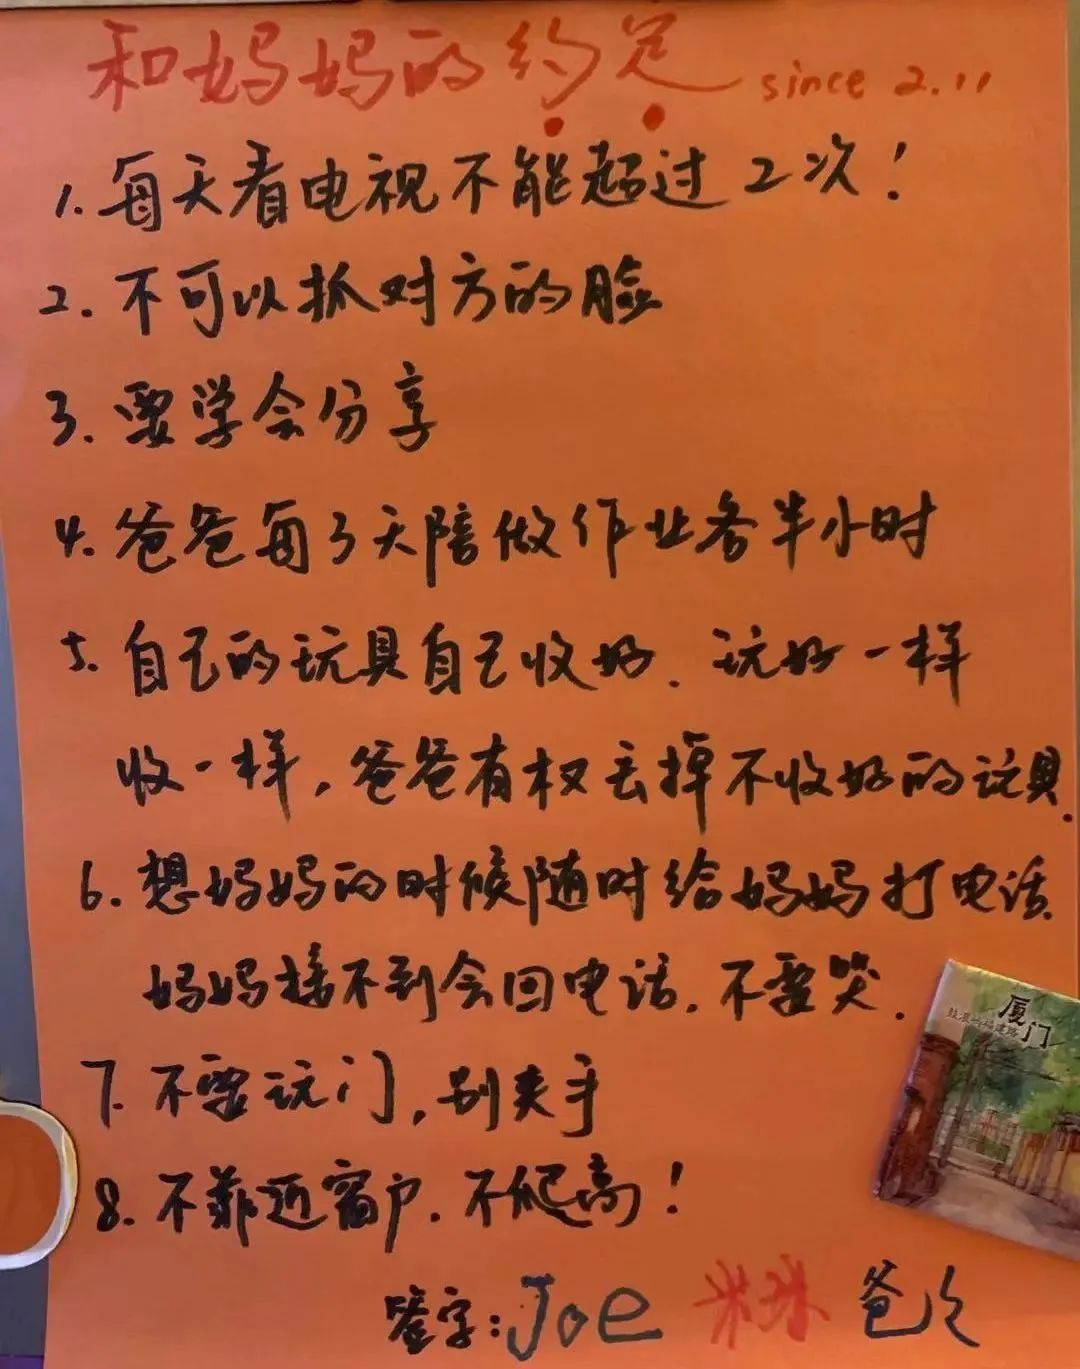 和妈妈的约定 since 2.11
1. 每天看电视不能超过2次!
2. 不可以抓对方的脸
3. 要学会分享
4. 爸爸每3天陪做作业各半小时
5. 自己的玩具自己收好. 玩好一样
收一样, 爸爸有权丢掉不收好的玩具.
6. 想妈妈的时候随时给妈妈打电话.
妈妈接不到会回电话. 不要哭.
厦门
7. 不要玩门, 别夹手
8. 不靠近窗户. 不爬高!
签字: Joe 爸爸